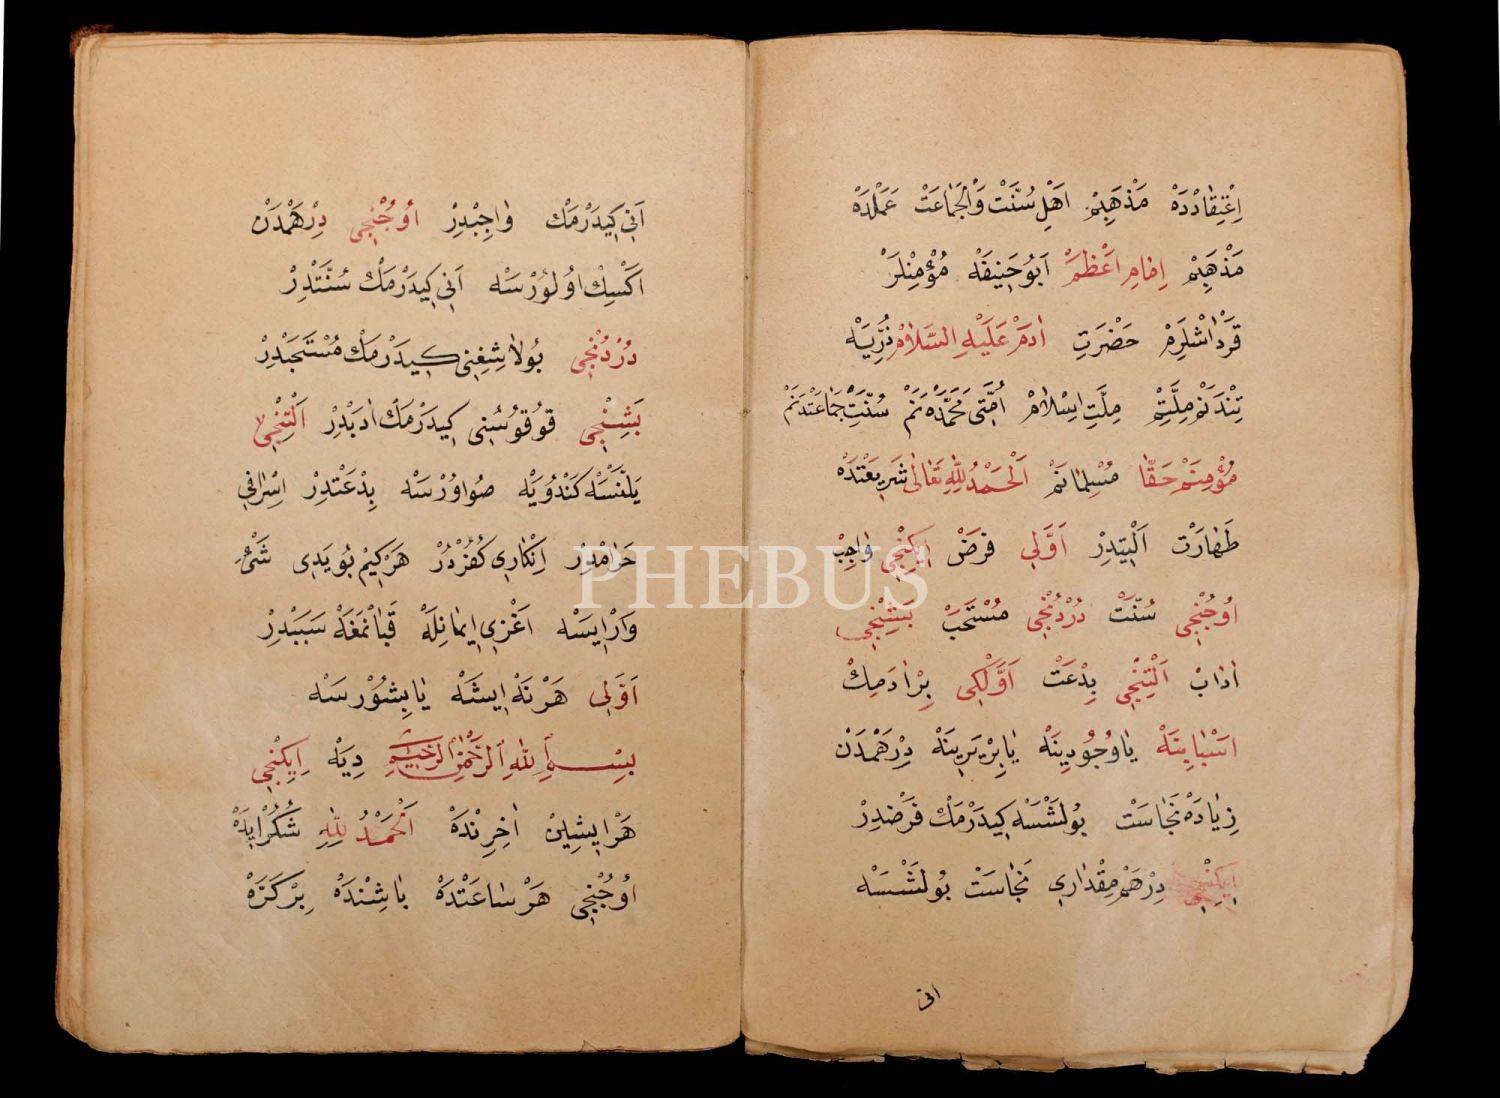 اِعْتِقَادْدَهْ مَذْهَبِمْ اَهْلِ سُنَّتْ وَالْجَمَاعَتْ عَمَلْدَهْ
مَذْهَبِمْ اِمَامِ اَعْظَمْ اَبُو حَنِيفَهْ مُؤْمِنْلَرْ
قَرْدَاشْلَرِمْ حَضْرَتِ اٰدَمْ عَلَيْهِ السَّلَامْ ذُرِّيَّهْ
تِنْدَنَمْ مِلَّتِمْ مِلَّتِ اِسْلَامْ اُمَّتِ مُحَمَّدْدَنَمْ سُنَّتْ جَمَاعَتْدَنَمْ
مُؤْمِنَمْ حَقًّا مُسْلِمَانَمْ اَلْحَمْدُ لِلّٰهِ تَعَالٰى شَرِيعَتْدَهْ
طَهَارَتْ اَلْتِيدِرْ اَوَّلِى فَرْضْ اِيكِنْجِى وَاجِبْ
اُوجُنْجِى سُنَّتْ دُرْدُنْجِى مُسْتَحَبْ بَشِنْجِى
اٰدَابْ اَلْتِنْجِى بِدْعَتْ اَوَّلْكِى بِرْ اٰدَمِكْ
اَسْبَابِنَهْ يَا وُجُودِينَهْ يَا بِرْ يَرِينَهْ دِرْهَمْدَنْ
زِيَادَهْ نَجَاسَتْ بُولَشْسَهْ كِيدَرْمَكْ فَرْضْدِرْ
اِيكِنْجِى دِرْهَمْ مِقْدَارِى نَجَاسَتْ بُولَشْسَهْ
انى
اَنِى كِيدَرْمَكْ وَاجِبْدِرْ اُوجُنْجِى دِرْهَمْدَنْ
اَكْسِكْ اُولُورْسَهْ اَنِى كِيدَرْمَكْ سُنَّتْدِرْ
دُرْدُنْجِى بُولَاشِغِنِى كِيدَرْمَكْ مُسْتَحَبْدِرْ
بَشِنْجِى قُوقُوسُنِى كِيدَرْمَكْ اَدَبْدِرْ اَلْتِنْجِى
يَلْنَسْهْ كَنْدُويَهْ صُوَاوُرْسَهْ بِدْعَتْدِرْ اِسْرَافِى
حَرَامْدُرْ اِنْكَارِى كُفُرْدُرْ هَرْ كِيمْ بُو يَدِى شَىْءِ
وَارْاِيسَهْ اَغْزِى اِيمَانِلَهْ قَپَانْمَغَهْ سَبَبْدِرْ
اَوَّلِى هَرْ نَهْ اِيشَهْ يَاپِشُورْسَهْ
بِسْمِ اللهِ الرَّحْمٰنِ الرَّحِيمِ دِيَهْ اِيكِنْجِى
هَرْ اِيشِينْ اٰخِرِنْدَهْ اَلْحَمْدُ لِلّٰهِ شُكُرْ اِيدَهْ
اُوجُنْجِى هَرْ سَاعَتْدَهْ بَاشِنْدَهْ بِرْ كَرَّهْ
PHEBUS